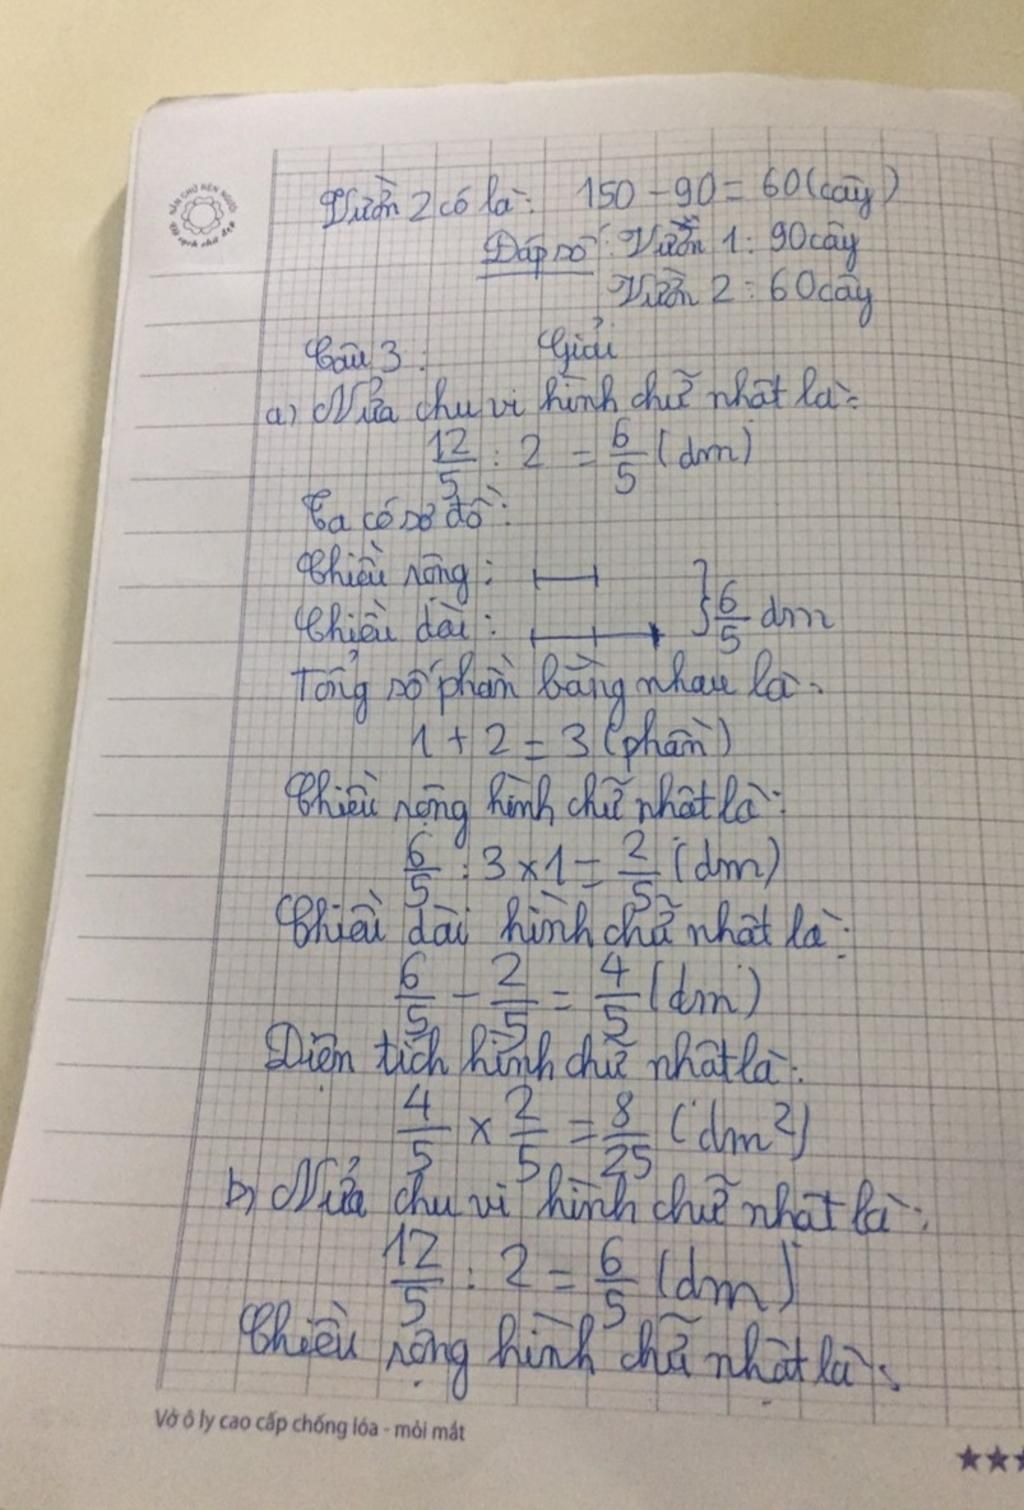 NẮN CHỮ RÈN NGƯỜI
Vở sạch chữ đẹp
Vườn 2 có là: 150 - 90 = 60 (cây)
Đáp số: Vườn 1: 90 cây
Vườn 2: 60 cây
Câu 3: Giải
a) Nửa chu vi hình chữ nhật là:
12/5 : 2 = 6/5 (dm)
Ta có sơ đồ:
Chiều rộng:
Chiều dài: } 6/5 dm
Tổng số phần bằng nhau là:
1 + 2 = 3 (phần)
Chiều rộng hình chữ nhật là:
6/5 : 3 x 1 = 2/5 (dm)
Chiều dài hình chữ nhật là:
6/5 - 2/5 = 4/5 (dm)
Diện tích hình chữ nhật là:
4/5 x 2/5 = 8/25 (dm²)
b) Nửa chu vi hình chữ nhật là:
12/5 : 2 = 6/5 (dm)
Chiều rộng hình chữ nhật là:
Vở ô ly cao cấp chống lóa - mỏi mắt